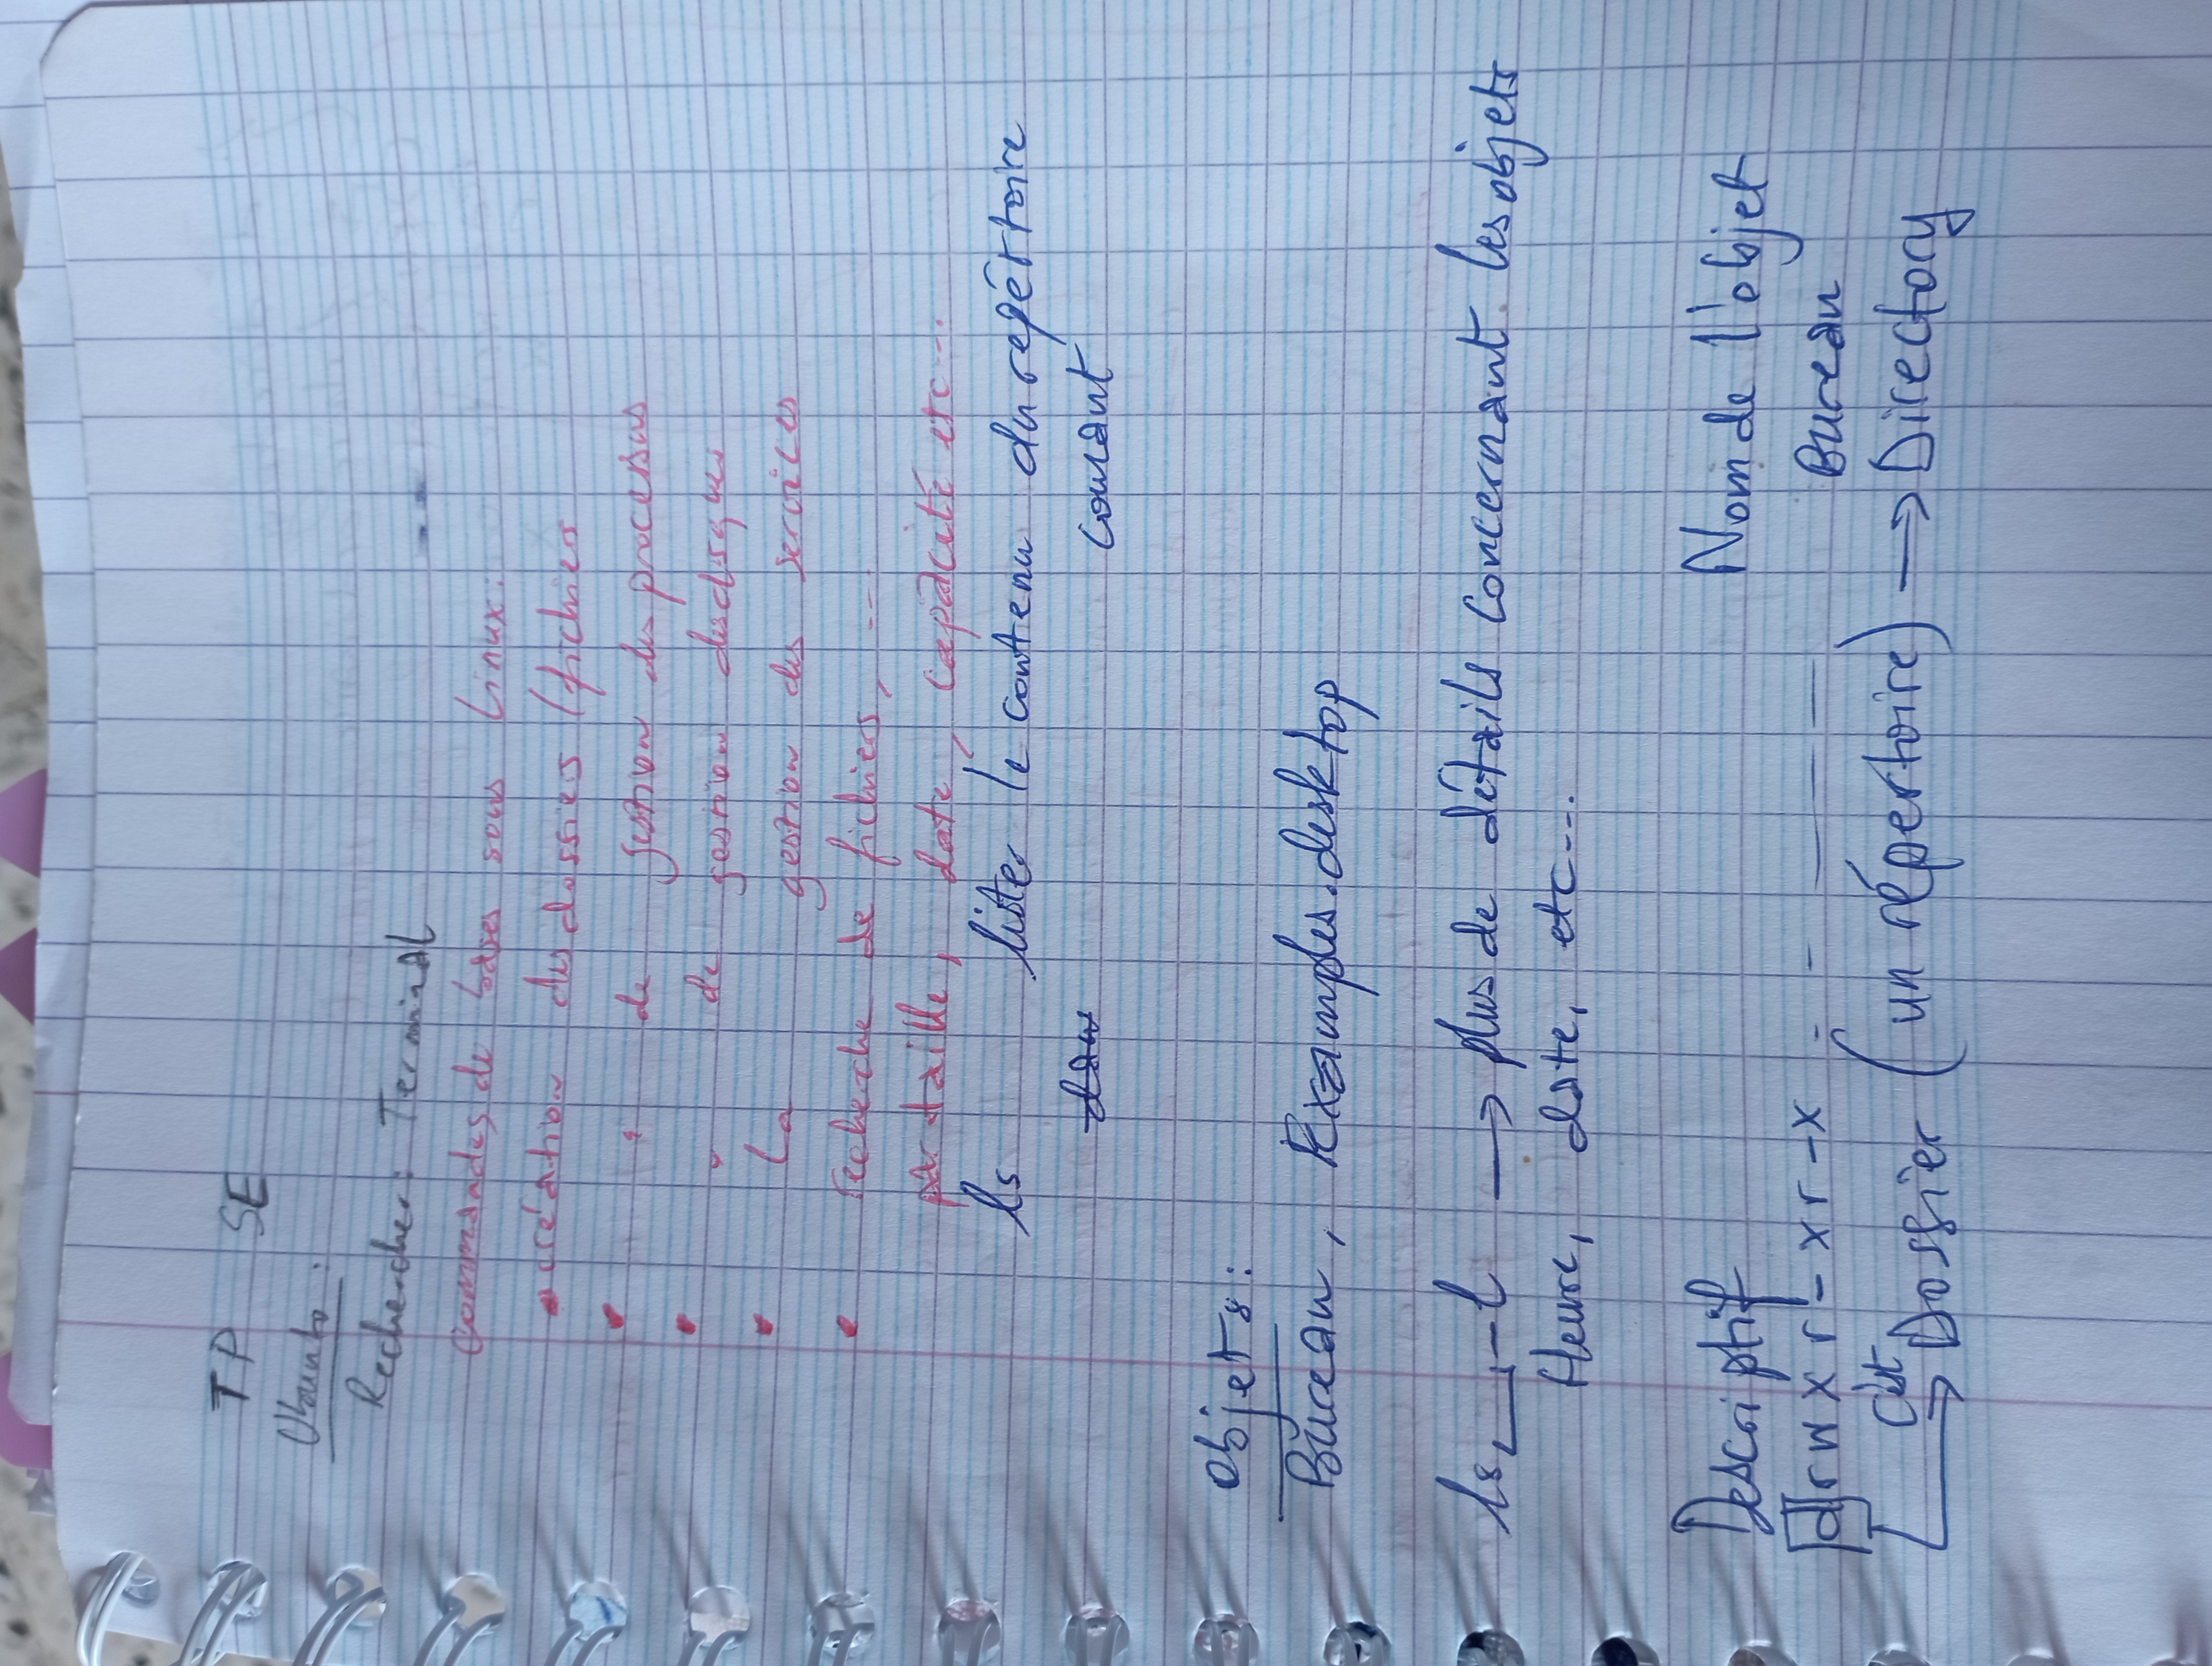 TP SE
Ubunto :
Rechercher : Terminal
Commandes de bases sous Linux :
• création des dossiers / fichiers
• " de gestion des processus
• " de gestion des disques
• La gestion des services
• recherche de fichiers, ...
par taille, date, capacité etc...
ls lister le contenu du repértoire
courant
Objets :
Bureau, Examples.desktop
ls⎵-l → plus de détails concernant les objets
Heure, date, etc...
Descriptif Nom de l'objet
drwxr-xr-x - - — — — Bureau
c'est
→ Dossier (un répertoire) → Directory